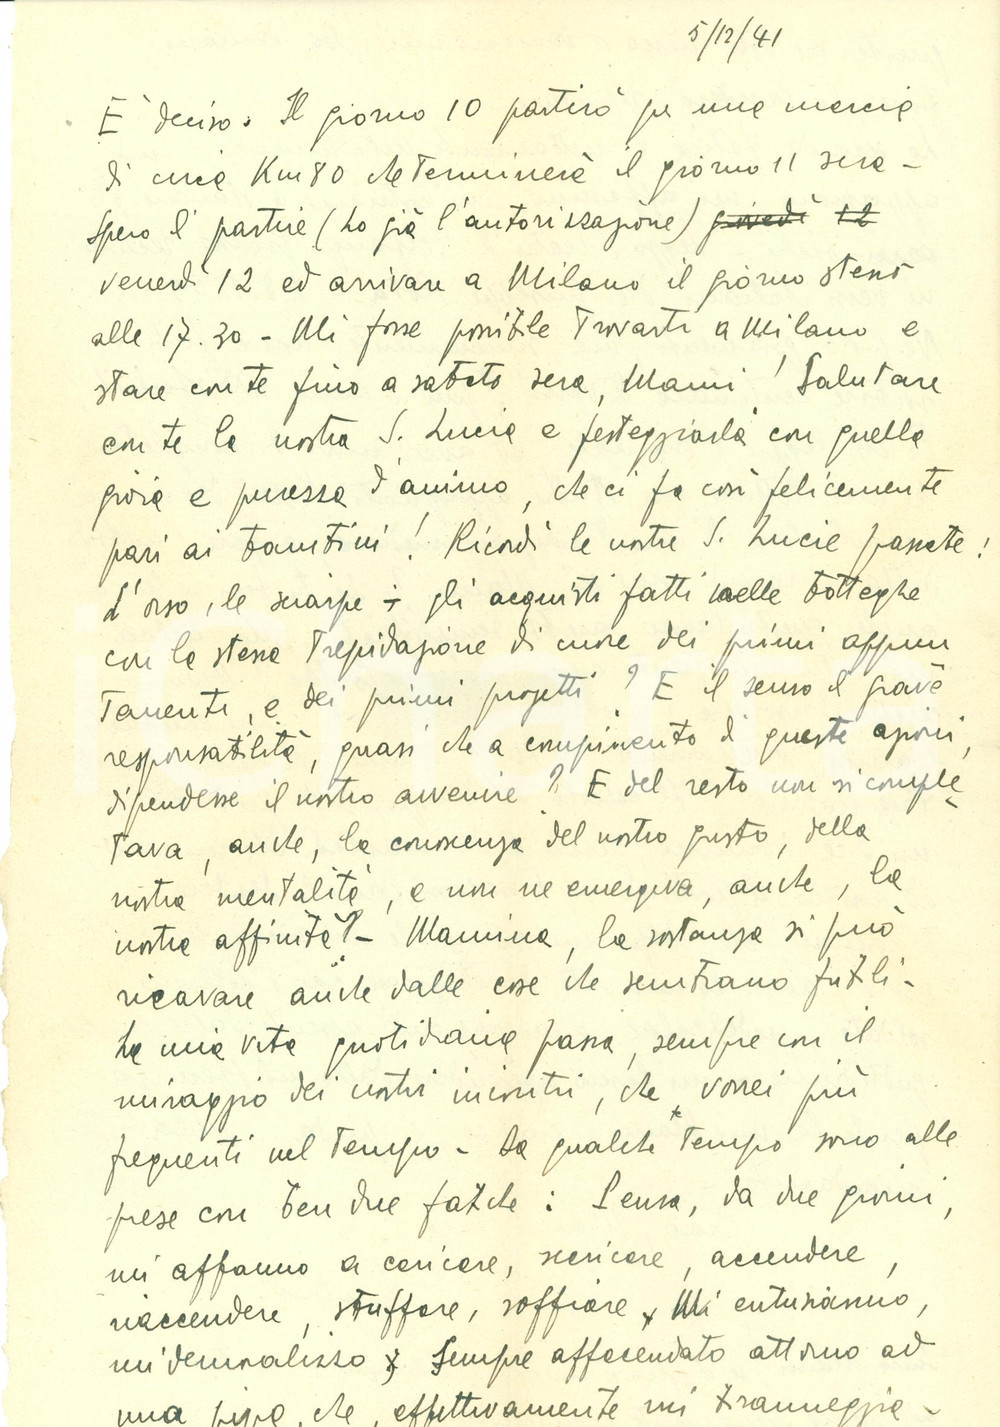 5/12/41
È deciso. Il giorno 10 partirò per una marcia
di circa Km 80 che terminerà il giorno 11 sera -
Spero di partire (ho già l'autorizzazione) giovedì 12
venerdì 12 ed arrivare a Milano il giorno stesso
alle 17.30 - Mi fosse possibile trovarti a Milano e
stare con te fino a sabato sera, Mami! Salutare
con te la nostra S. Lucia e festeggiarla con quella
gioia e purezza d'animo, che ci fa così felicemente
pari ai bambini! Ricordi le nostre S. Lucie passate!
L'orso, le scarpe - gli acquisti fatti nelle botteghe
con la stessa trepidazione di cuore dei primi appun
tamenti, e dei primi progetti? E il senso di grave
responsabilità, quasi che a compimento di queste azioni,
dipendesse il nostro avvenire? E del resto non si comple
tava, anche, la conoscenza del nostro gusto, della
nostra mentalità, e non ne emergeva, anche, la
nostra affinità? - Mamina, la sostanza si può
ricavare anche dalle cose che sembrano futili -
La mia vita quotidiana passa, sempre con il
miraggio dei nostri incontri, che vorrei più
frequenti nel tempo - Da qualche tempo sono alle
prese con ben due fatiche: Senza, da due giorni,
mi affanno a caricare, scaricare, accendere,
riaccendere, stuffare, soffiare, Mi entusiasmo,
mi demoralizzo, Sempre affaccendato attorno ad
una pipa, che, effettivamente mi